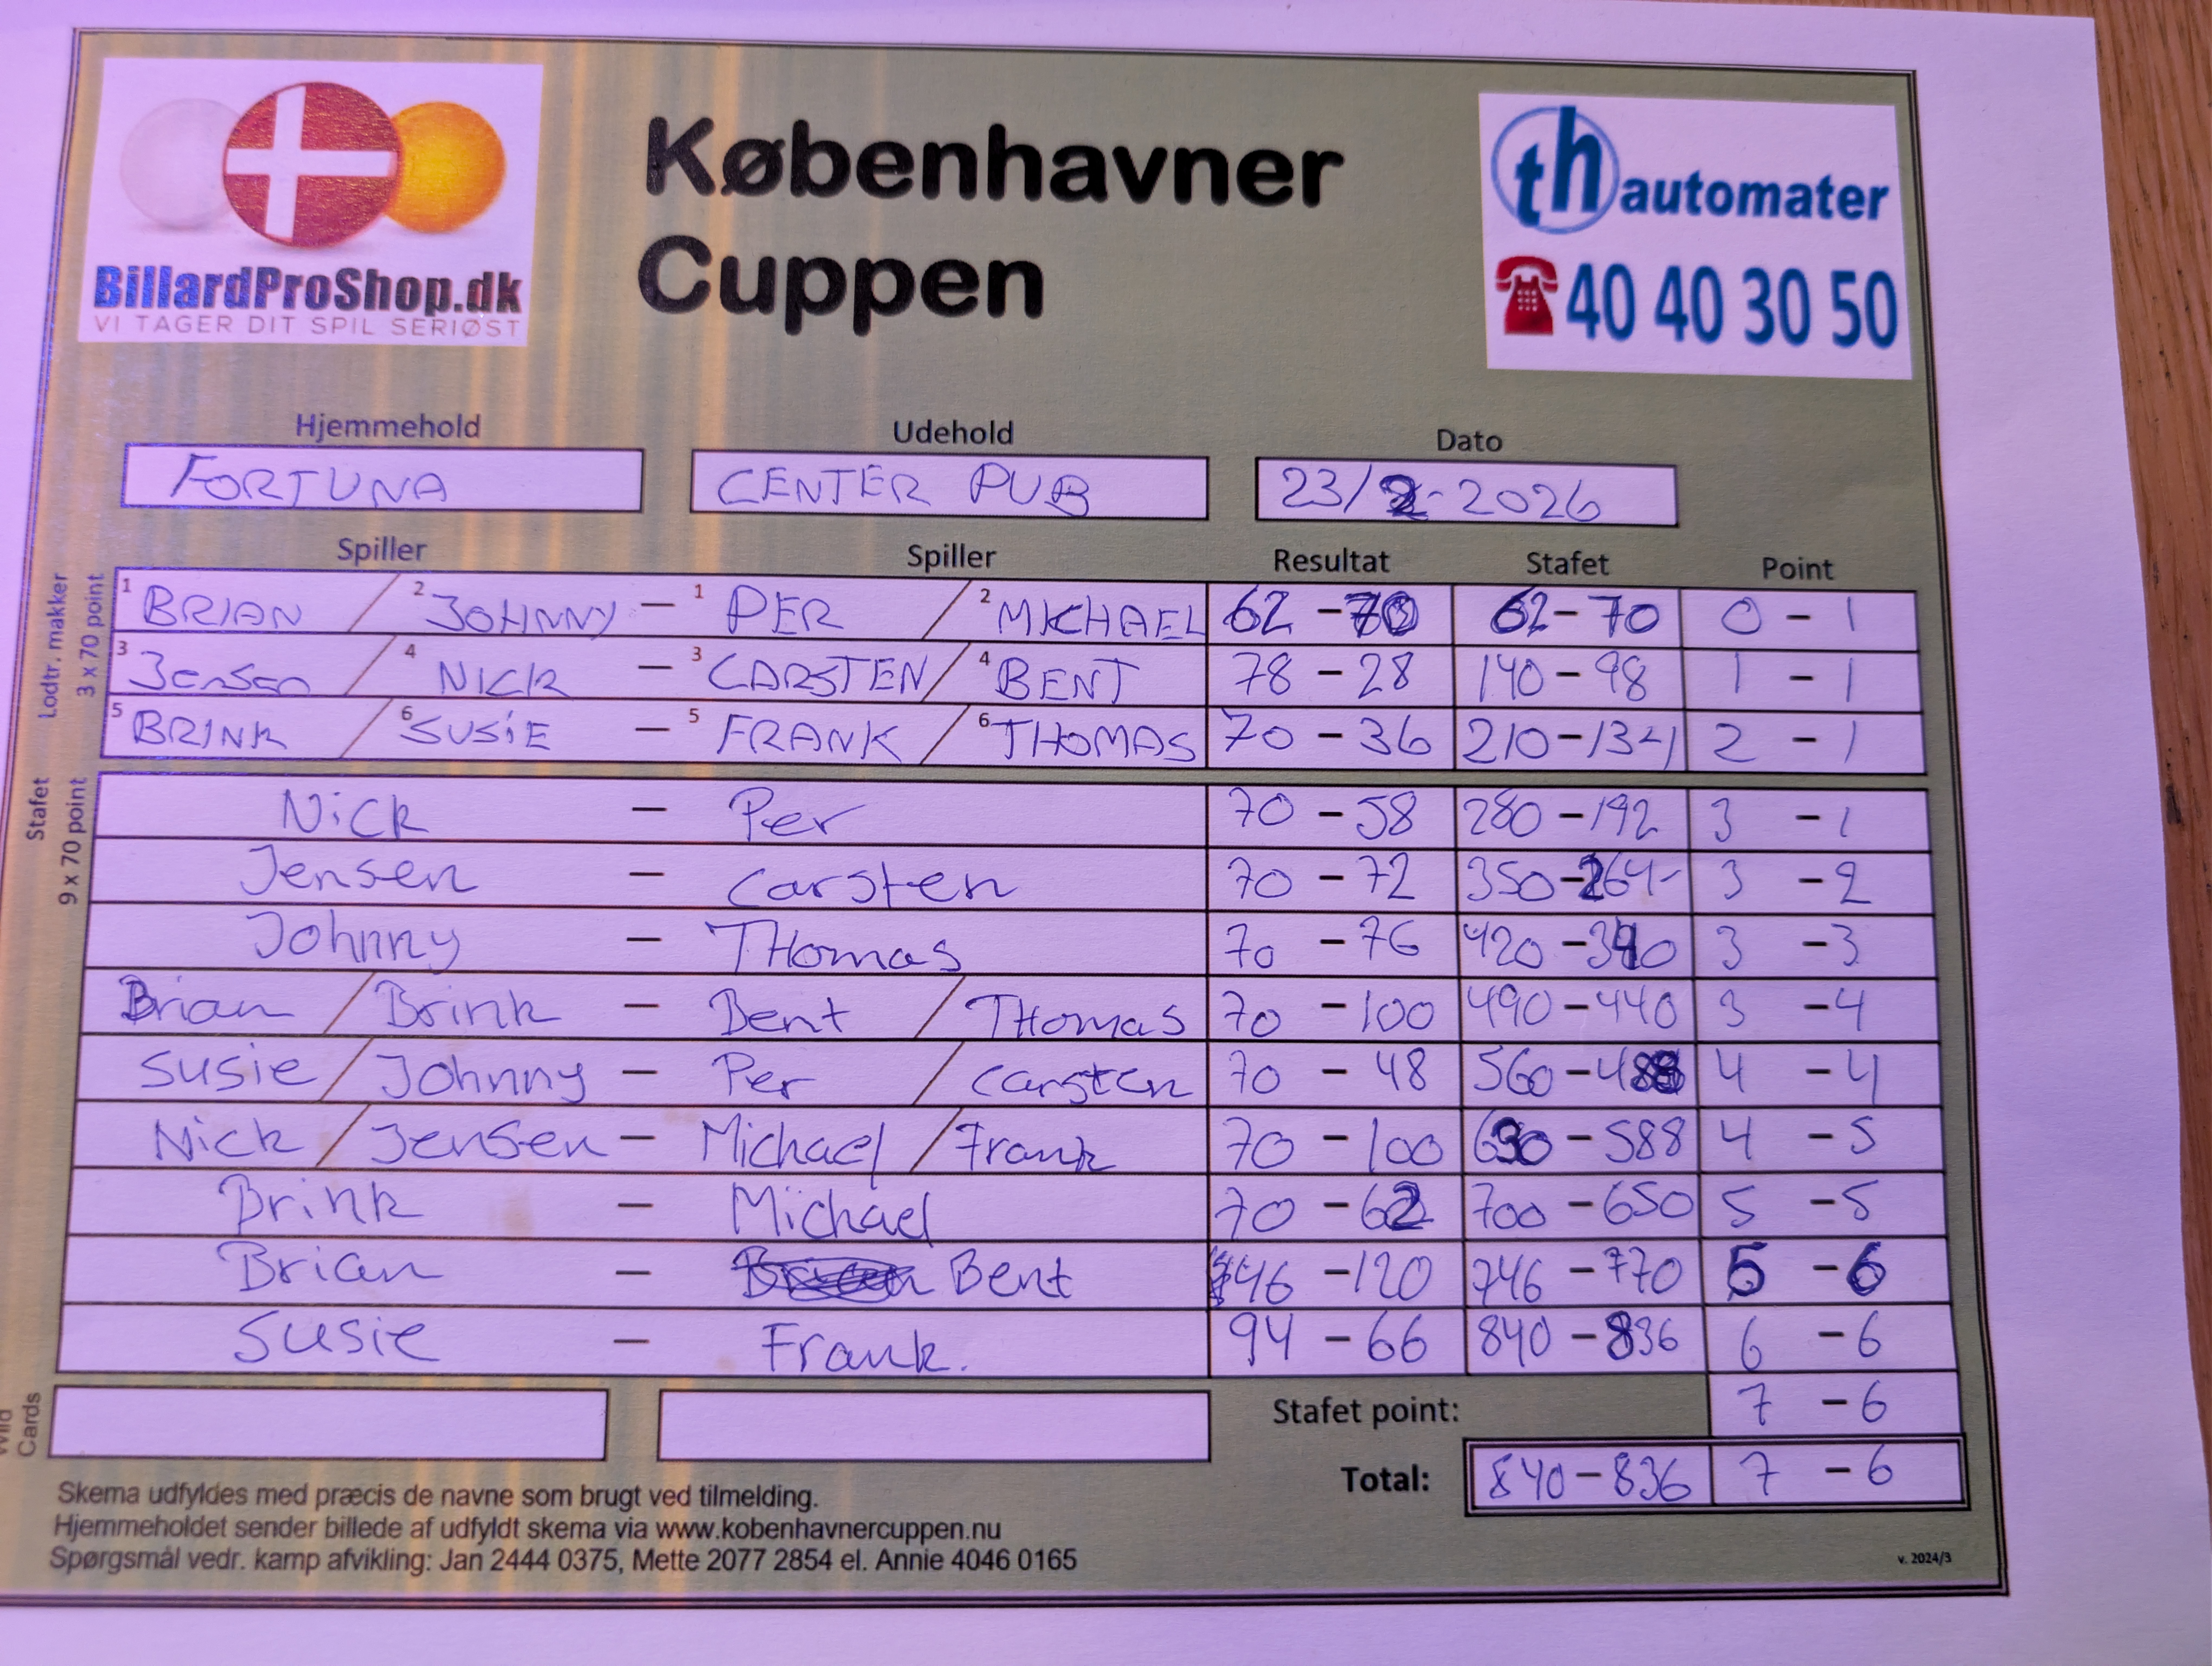 BillardProShop.dk
VI TAGER DIT SPIL SERIØST
Københavner
Cuppen
th automater
40 40 30 50
Hjemmehold Udehold Dato
FORTUNA CENTER PUB 23/2-2026
Spiller Spiller Resultat Stafet Point
Lodtr. makker
3 x 70 point
1 BRIAN / 2 JOHNNY - 1 PER / 2 MICHAEL 62 - 70 62 - 70 0 - 1
3 Jensen / 4 NICK - 3 CARSTEN / 4 BENT 78 - 28 140 - 98 1 - 1
5 BRINK / 6 SUSIE - 5 FRANK / 6 THOMAS 70 - 36 210 - 134 2 - 1
Stafet
9 x 70 point
Nick - Per 70 - 58 280 - 192 3 - 1
Jensen - Carsten 70 - 72 350 - 264 3 - 2
Johnny - THomas 70 - 76 420 - 340 3 - 3
Brian / Brink - Bent / THomas 70 - 100 490 - 440 3 - 4
Susie / Johnny - Per / Carsten 70 - 48 560 - 488 4 - 4
Nick / Jensen - Michael / Frank 70 - 100 630 - 588 4 - 5
Brink - Michael 70 - 62 700 - 650 5 - 5
Brian - Bent 46 - 120 746 - 770 5 - 6
Susie - Frank. 94 - 66 840 - 836 6 - 6
Wild
Cards
Stafet point: 7 - 6
Total: 840 - 836 7 - 6
Skema udfyldes med præcis de navne som brugt ved tilmelding.
Hjemmeholdet sender billede af udfyldt skema via www.kobenhavnercuppen.nu
Spørgsmål vedr. kamp afvikling: Jan 2444 0375, Mette 2077 2854 el. Annie 4046 0165
v. 2024/3